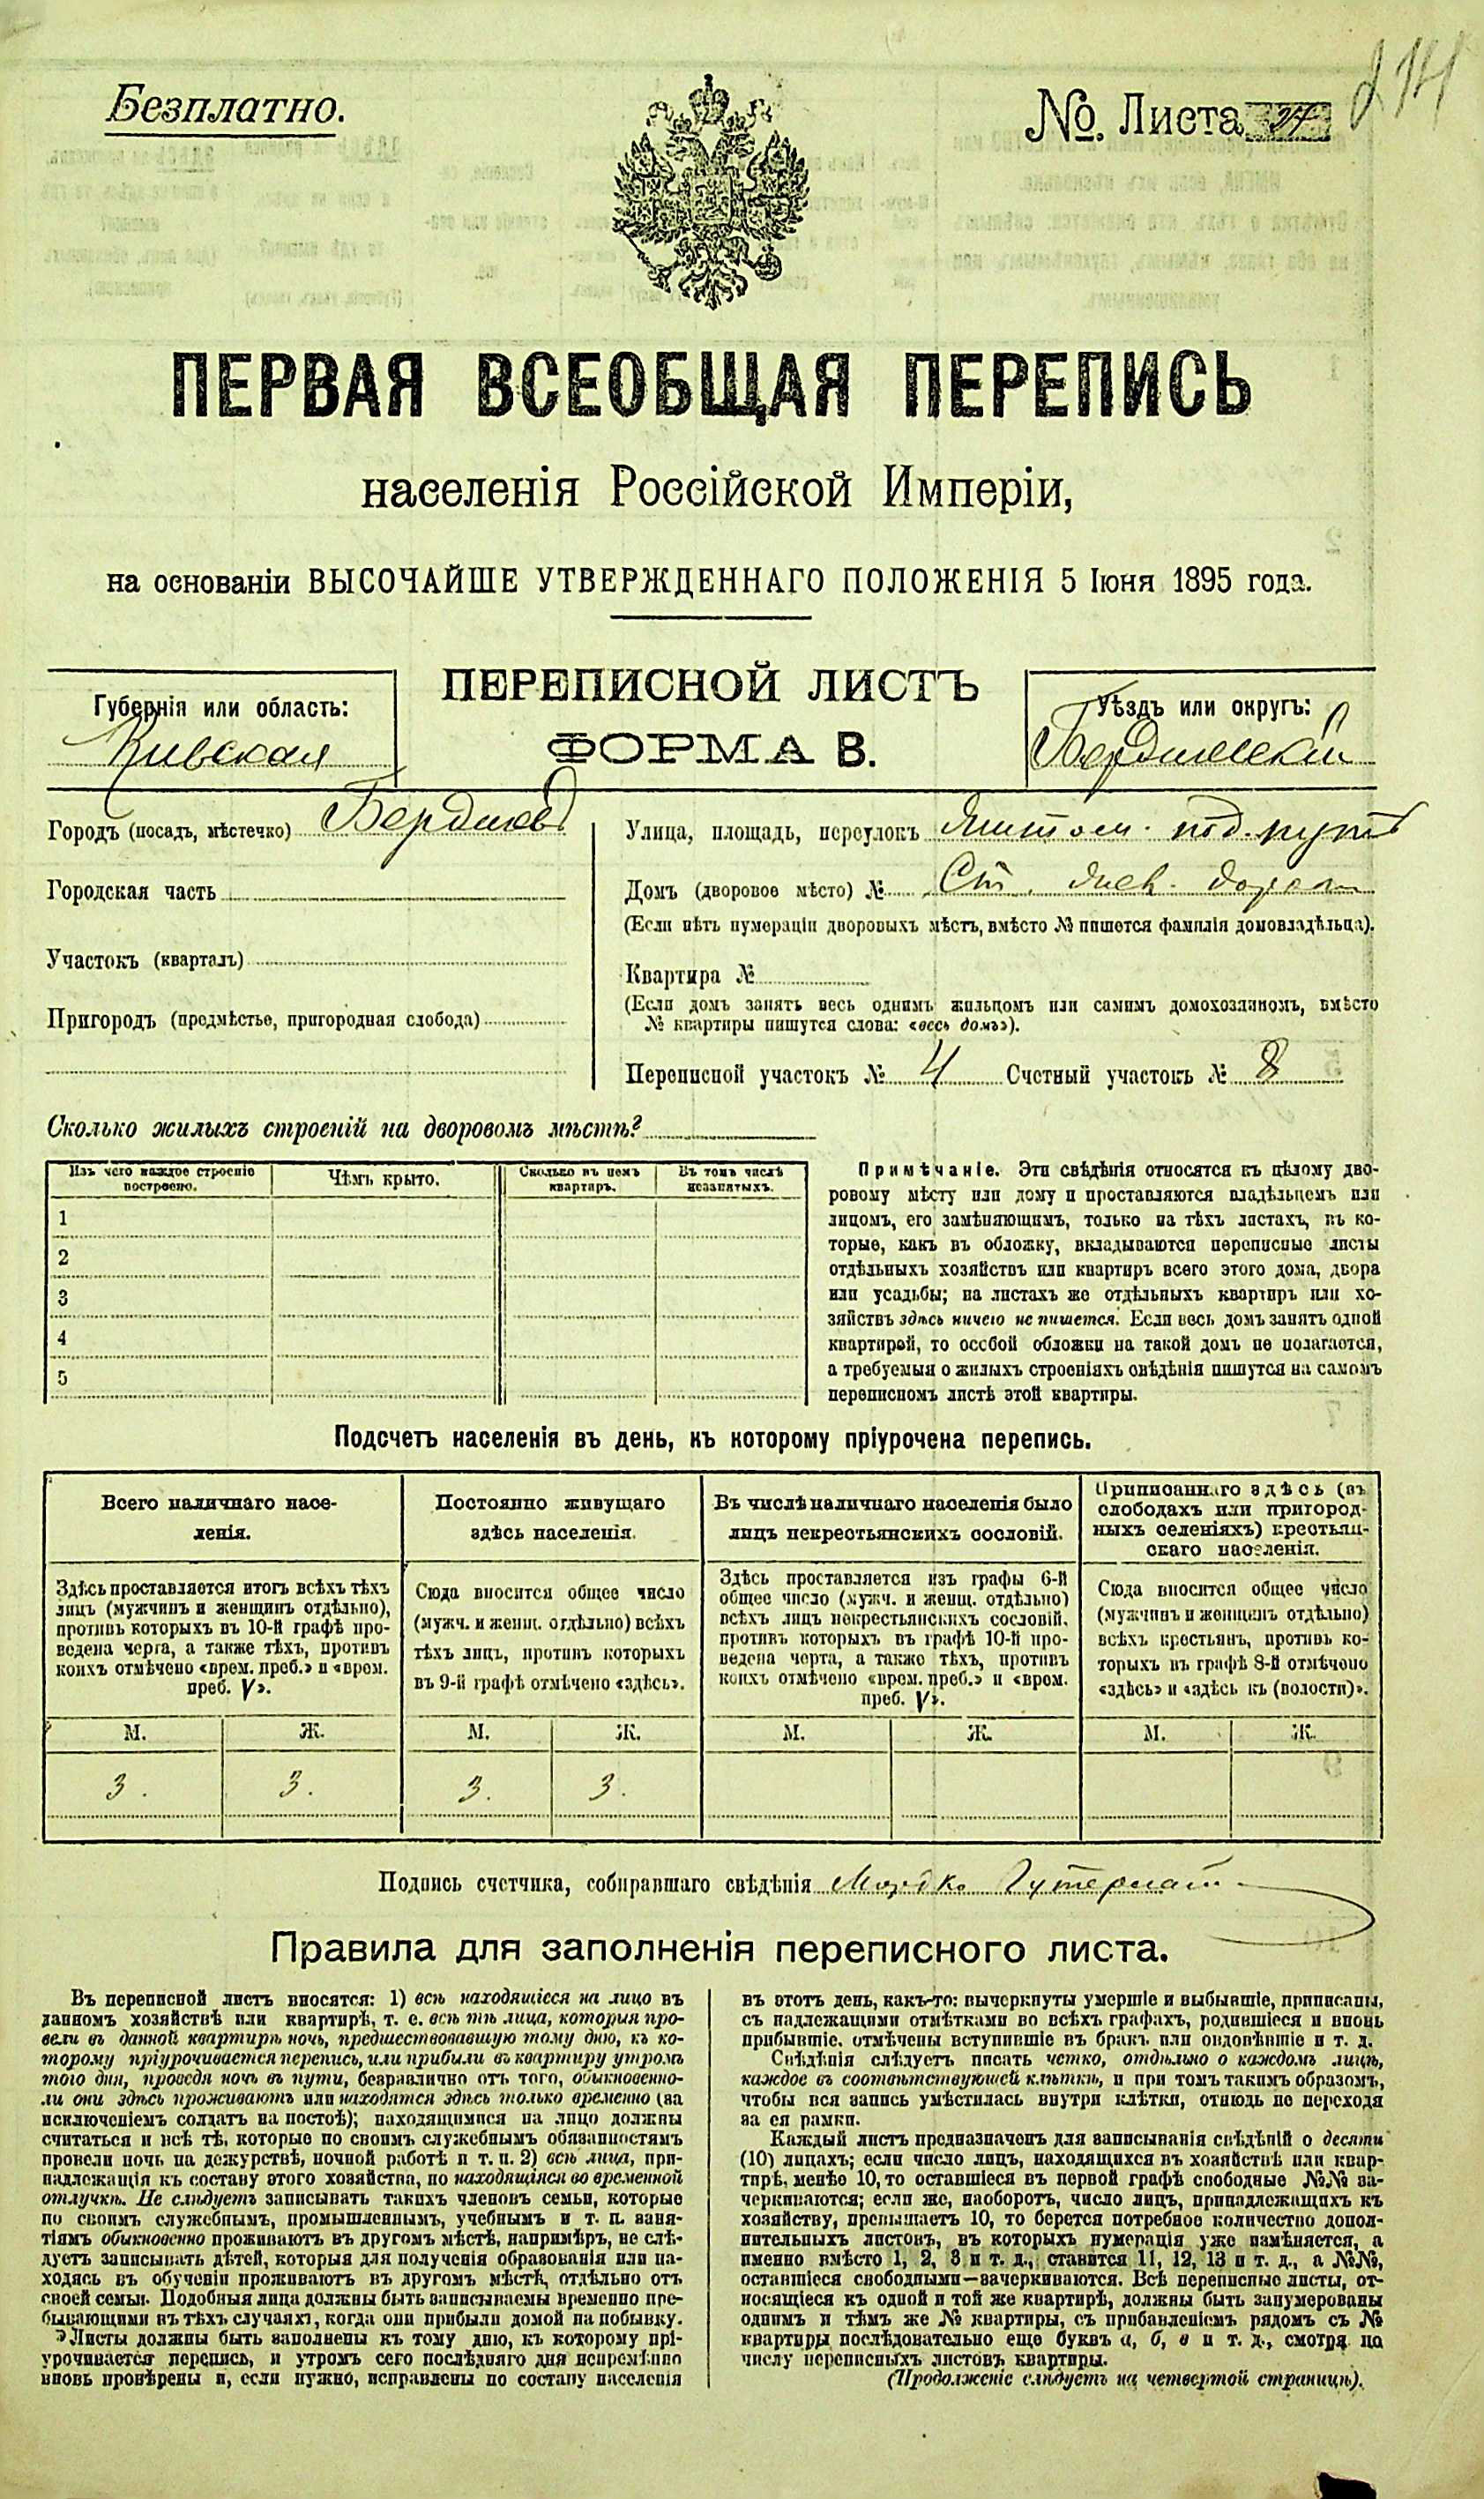 Безплатно.
№. Листа 24
214
ПЕРВАЯ ВСЕОБЩАЯ ПЕРЕПИСЬ
населенія Россійской Имперіи,
на основаніи ВЫСОЧАЙШЕ УТВЕРЖДЕННАГО ПОЛОЖЕНІЯ 5 Іюня 1895 года.
ПЕРЕПИСНОЙ ЛИСТЪ
ФОРМА В.
Губернія или область:
Киевская
Уѣздъ или округъ:
Бердичевскій
Городъ (посадъ, мѣстечко) Бердичевъ
Городская часть
Участокъ (кварталъ)
Пригородъ (предмѣстье, пригородная слобода)
Улица, площадь, переулокъ
Домъ (дворовое мѣсто) №
(Если нѣтъ нумераціи дворовыхъ мѣстъ, вмѣсто № пишется фамилія домовладѣльца).
Квартира №
(Если домъ занятъ весь однимъ жильцомъ или самимъ домохозяиномъ, вмѣсто
№ квартиры пишутся слова: «весь домъ»).
Переписной участокъ № 4 Счетный участокъ № 8
Сколько жилыхъ строеній на дворовомъ мѣстѣ?
Изъ чего каждое строеніе
построено.
Чѣмъ крыто.
Сколько въ немъ
квартиръ.
Въ томъ числѣ
незанятыхъ.
1
2
3
4
5
Примѣчаніе. Эти свѣдѣнія относятся къ цѣлому дво-
ровому мѣсту или дому и проставляются владѣльцемъ или
лицомъ, его замѣняющимъ, только на тѣхъ листахъ, въ ко-
торые, какъ въ обложку, вкладываются переписные листы
отдѣльныхъ хозяйствъ или квартиръ всего этого дома, двора
или усадьбы; на листахъ же отдѣльныхъ квартиръ или хо-
зяйствъ здѣсь ничего не пишется. Если весь домъ занятъ одной
квартирой, то особой обложки на такой домъ не полагается,
а требуемыя о жилыхъ строеніяхъ свѣдѣнія пишутся на самомъ
переписномъ листѣ этой квартиры.
Подсчетъ населенія въ день, къ которому пріурочена перепись.
Всего наличнаго насе-
ленія.
Здѣсь проставляется итогъ всѣхъ тѣхъ
лицъ (мужчинъ и женщинъ отдѣльно),
противъ которыхъ въ 10-й графѣ про-
ведена черта, а также тѣхъ, противъ
коихъ отмѣчено «врем. преб.» и «врем.
преб. V».
Постоянно живущаго
здѣсь населенія.
Сюда вносится общее число
(мужч. и женщ. отдѣльно) всѣхъ
тѣхъ лицъ, противъ которыхъ
въ 9-й графѣ отмѣчено «здѣсь».
Въ числѣ наличнаго населенія было
лицъ некрестьянскихъ сословій.
Здѣсь проставляется изъ графы 6-й
общее число (мужч. и женщ. отдѣльно)
всѣхъ лицъ некрестьянскихъ сословій,
противъ которыхъ въ графѣ 10-й про-
ведена черта, а также тѣхъ, противъ
коихъ отмѣчено «врем. преб.» и «врем.
преб. V».
Приписаннаго здѣсь (въ
слободахъ или пригород-
ныхъ селеніяхъ) крестьян-
скаго населенія.
Сюда вносится общее число
(мужчинъ и женщинъ отдѣльно)
всѣхъ крестьянъ, противъ ко-
торыхъ въ графѣ 8-й отмѣчено
«здѣсь» и «здѣсь къ (волости)».
М. Ж. М. Ж. М. Ж. М. Ж.
3. 3. 3. 3.
Подпись счетчика, собиравшаго свѣдѣнія Мордко Гутерман
Правила для заполненія переписного листа.
Въ переписной листъ вносятся: 1) всѣ находящіеся на лицо въ
данномъ хозяйствѣ или квартирѣ, т. е. всѣ тѣ лица, которыя про-
вели въ данной квартирѣ ночь, предшествовавшую тому дню, къ ко-
торому пріурочивается перепись, или прибыли въ квартиру утромъ
того дня, проведя ночь въ пути, безразлично отъ того, обыкновенно-
ли они здѣсь проживаютъ или находятся здѣсь только временно (за
исключеніемъ солдатъ на постоѣ); находящимися на лицо должны
считаться и всѣ тѣ, которые по своимъ служебнымъ обязанностямъ
провели ночь на дежурствѣ, ночной работѣ и т. п. 2) всѣ лица, при-
надлежащія къ составу этого хозяйства, но находящіяся во временной
отлучкѣ. Не слѣдуетъ записывать такихъ членовъ семьи, которые
по своимъ служебнымъ, промышленнымъ, учебнымъ и т. п. заня-
тіямъ обыкновенно проживаютъ въ другомъ мѣстѣ, напримѣръ, не слѣ-
дуетъ записывать дѣтей, которыя для полученія образованія или на-
ходясь въ обученіи проживаютъ въ другомъ мѣстѣ, отдѣльно отъ
своей семьи. Подобныя лица должны быть записываемы временно пре-
бывающими въ тѣхъ случаяхъ, когда они прибыли домой на побывку.
Листы должны быть заполнены къ тому дню, къ которому прі-
урочивается перепись, и утромъ сего послѣдняго дня непремѣнно
вновь провѣрены и, если нужно, исправлены по составу населенія
въ этотъ день, какъ-то: вычеркнуты умершіе и выбывшіе, приписаны,
съ надлежащими отмѣтками во всѣхъ графахъ, родившіеся и вновь
прибывшіе, отмѣчены вступившіе въ бракъ или овдовѣвшіе и т. д.
Свѣдѣнія слѣдуетъ писать четко, отдѣльно о каждомъ лицѣ,
каждое въ соотвѣтствующей клѣткѣ, и при томъ такимъ образомъ,
чтобы вся запись умѣстилась внутри клѣтки, отнюдь не переходя
за ея рамки.
Каждый листъ предназначенъ для записыванія свѣдѣній о десяти
(10) лицахъ; если число лицъ, находящихся въ хозяйствѣ или квар-
тирѣ, менѣе 10, то оставшіеся въ первой графѣ свободные №№ за-
черкиваются; если же, наоборотъ, число лицъ, принадлежащихъ къ
хозяйству, превышаетъ 10, то берется потребное количество допол-
нительныхъ листовъ, въ которыхъ нумерація уже измѣняется, а
именно вмѣсто 1, 2, 3 и т. д., ставится 11, 12, 13 и т. д., а №№,
оставшіеся свободными—зачеркиваются. Всѣ переписные листы, от-
носящіеся къ одной и той же квартирѣ, должны быть занумерованы
однимъ и тѣмъ же № квартиры, съ прибавленіемъ рядомъ съ №
квартиры послѣдовательно еще буквъ а, б, в и т. д., смотря по
числу переписныхъ листовъ квартиры.
(Продолженіе слѣдуетъ на четвертой страницѣ).